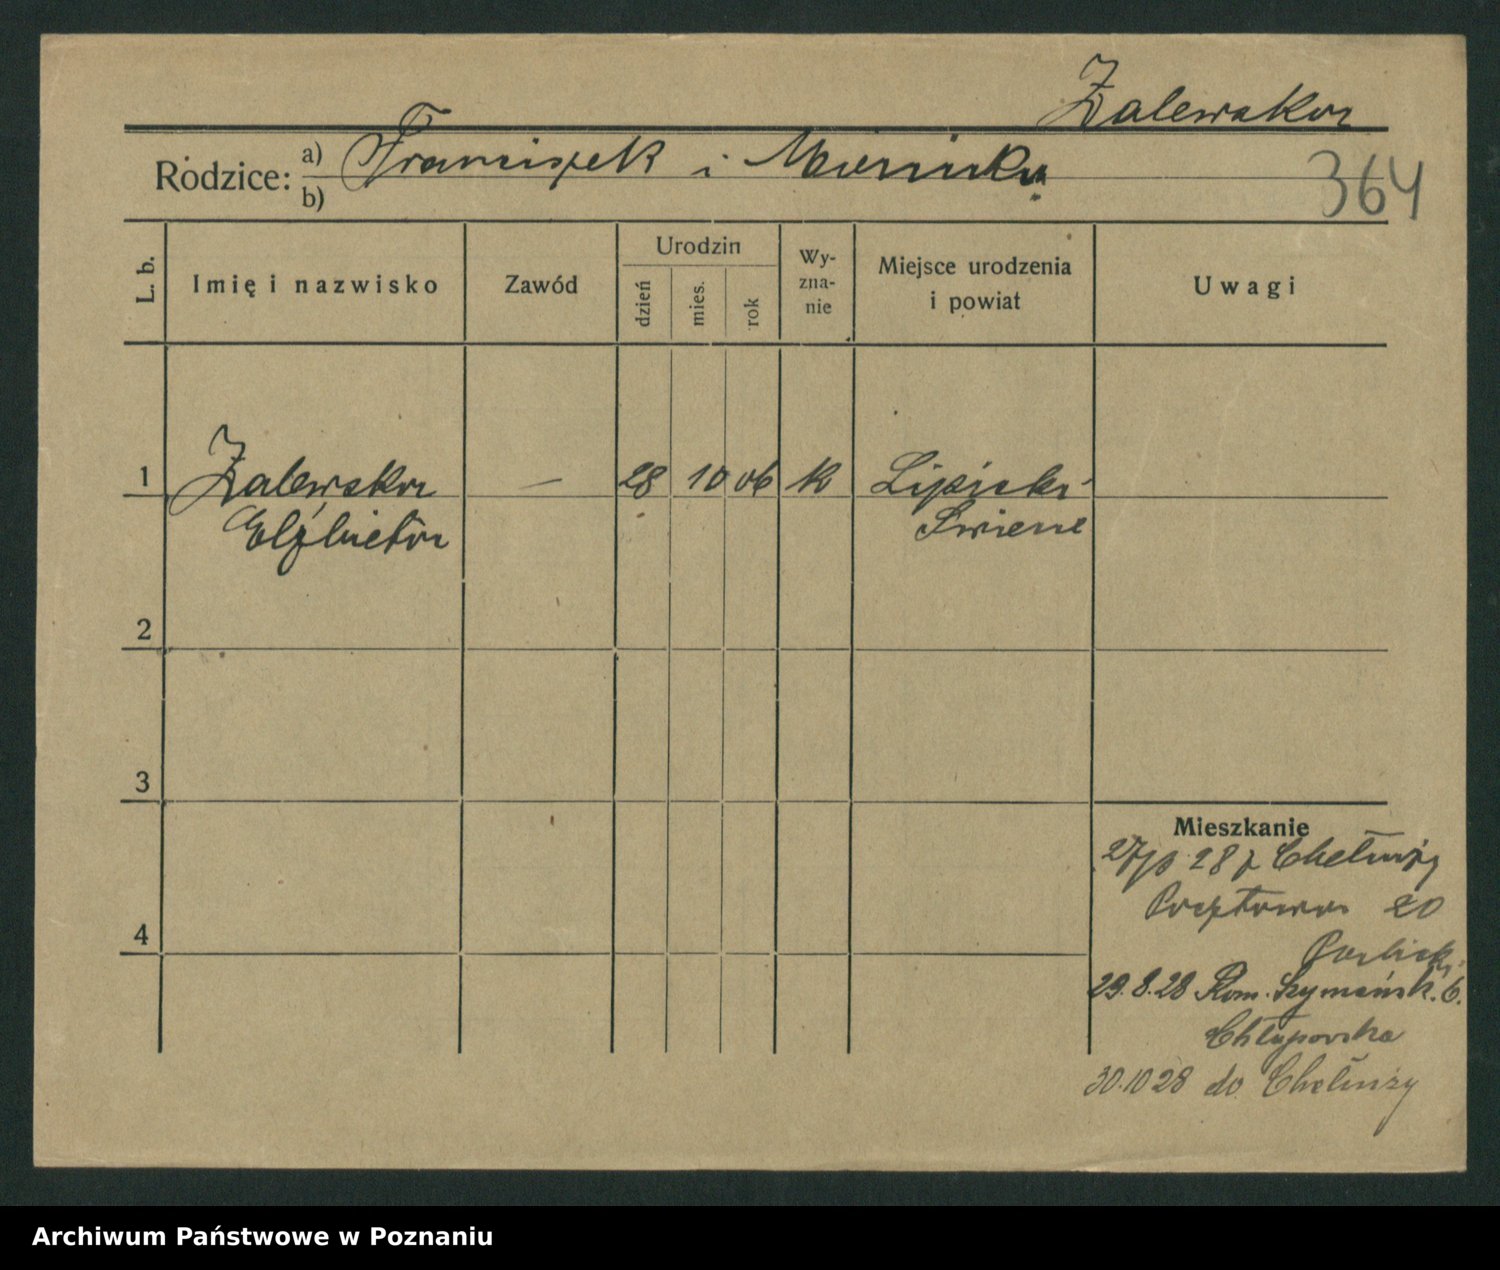 Zalewska
Rodzice: a) Franciszek i
b)
364
L. b.
Imię i nazwisko
Zawód
Urodzin
dzień
mies.
rok
Wy-
zna-
nie
Miejsce urodzenia
i powiat
Uwagi
1 Zalewska — 28 10 06 k Lipinki
Elżbieta Świecie
2
3
4
Mieszkanie
28 z Chełmży
Pocztowa 20
29.8.28 Rom. Szymańsk. 6.
Chłapowska
30.10 28 do Chełmży
Archiwum Państwowe w Poznaniu